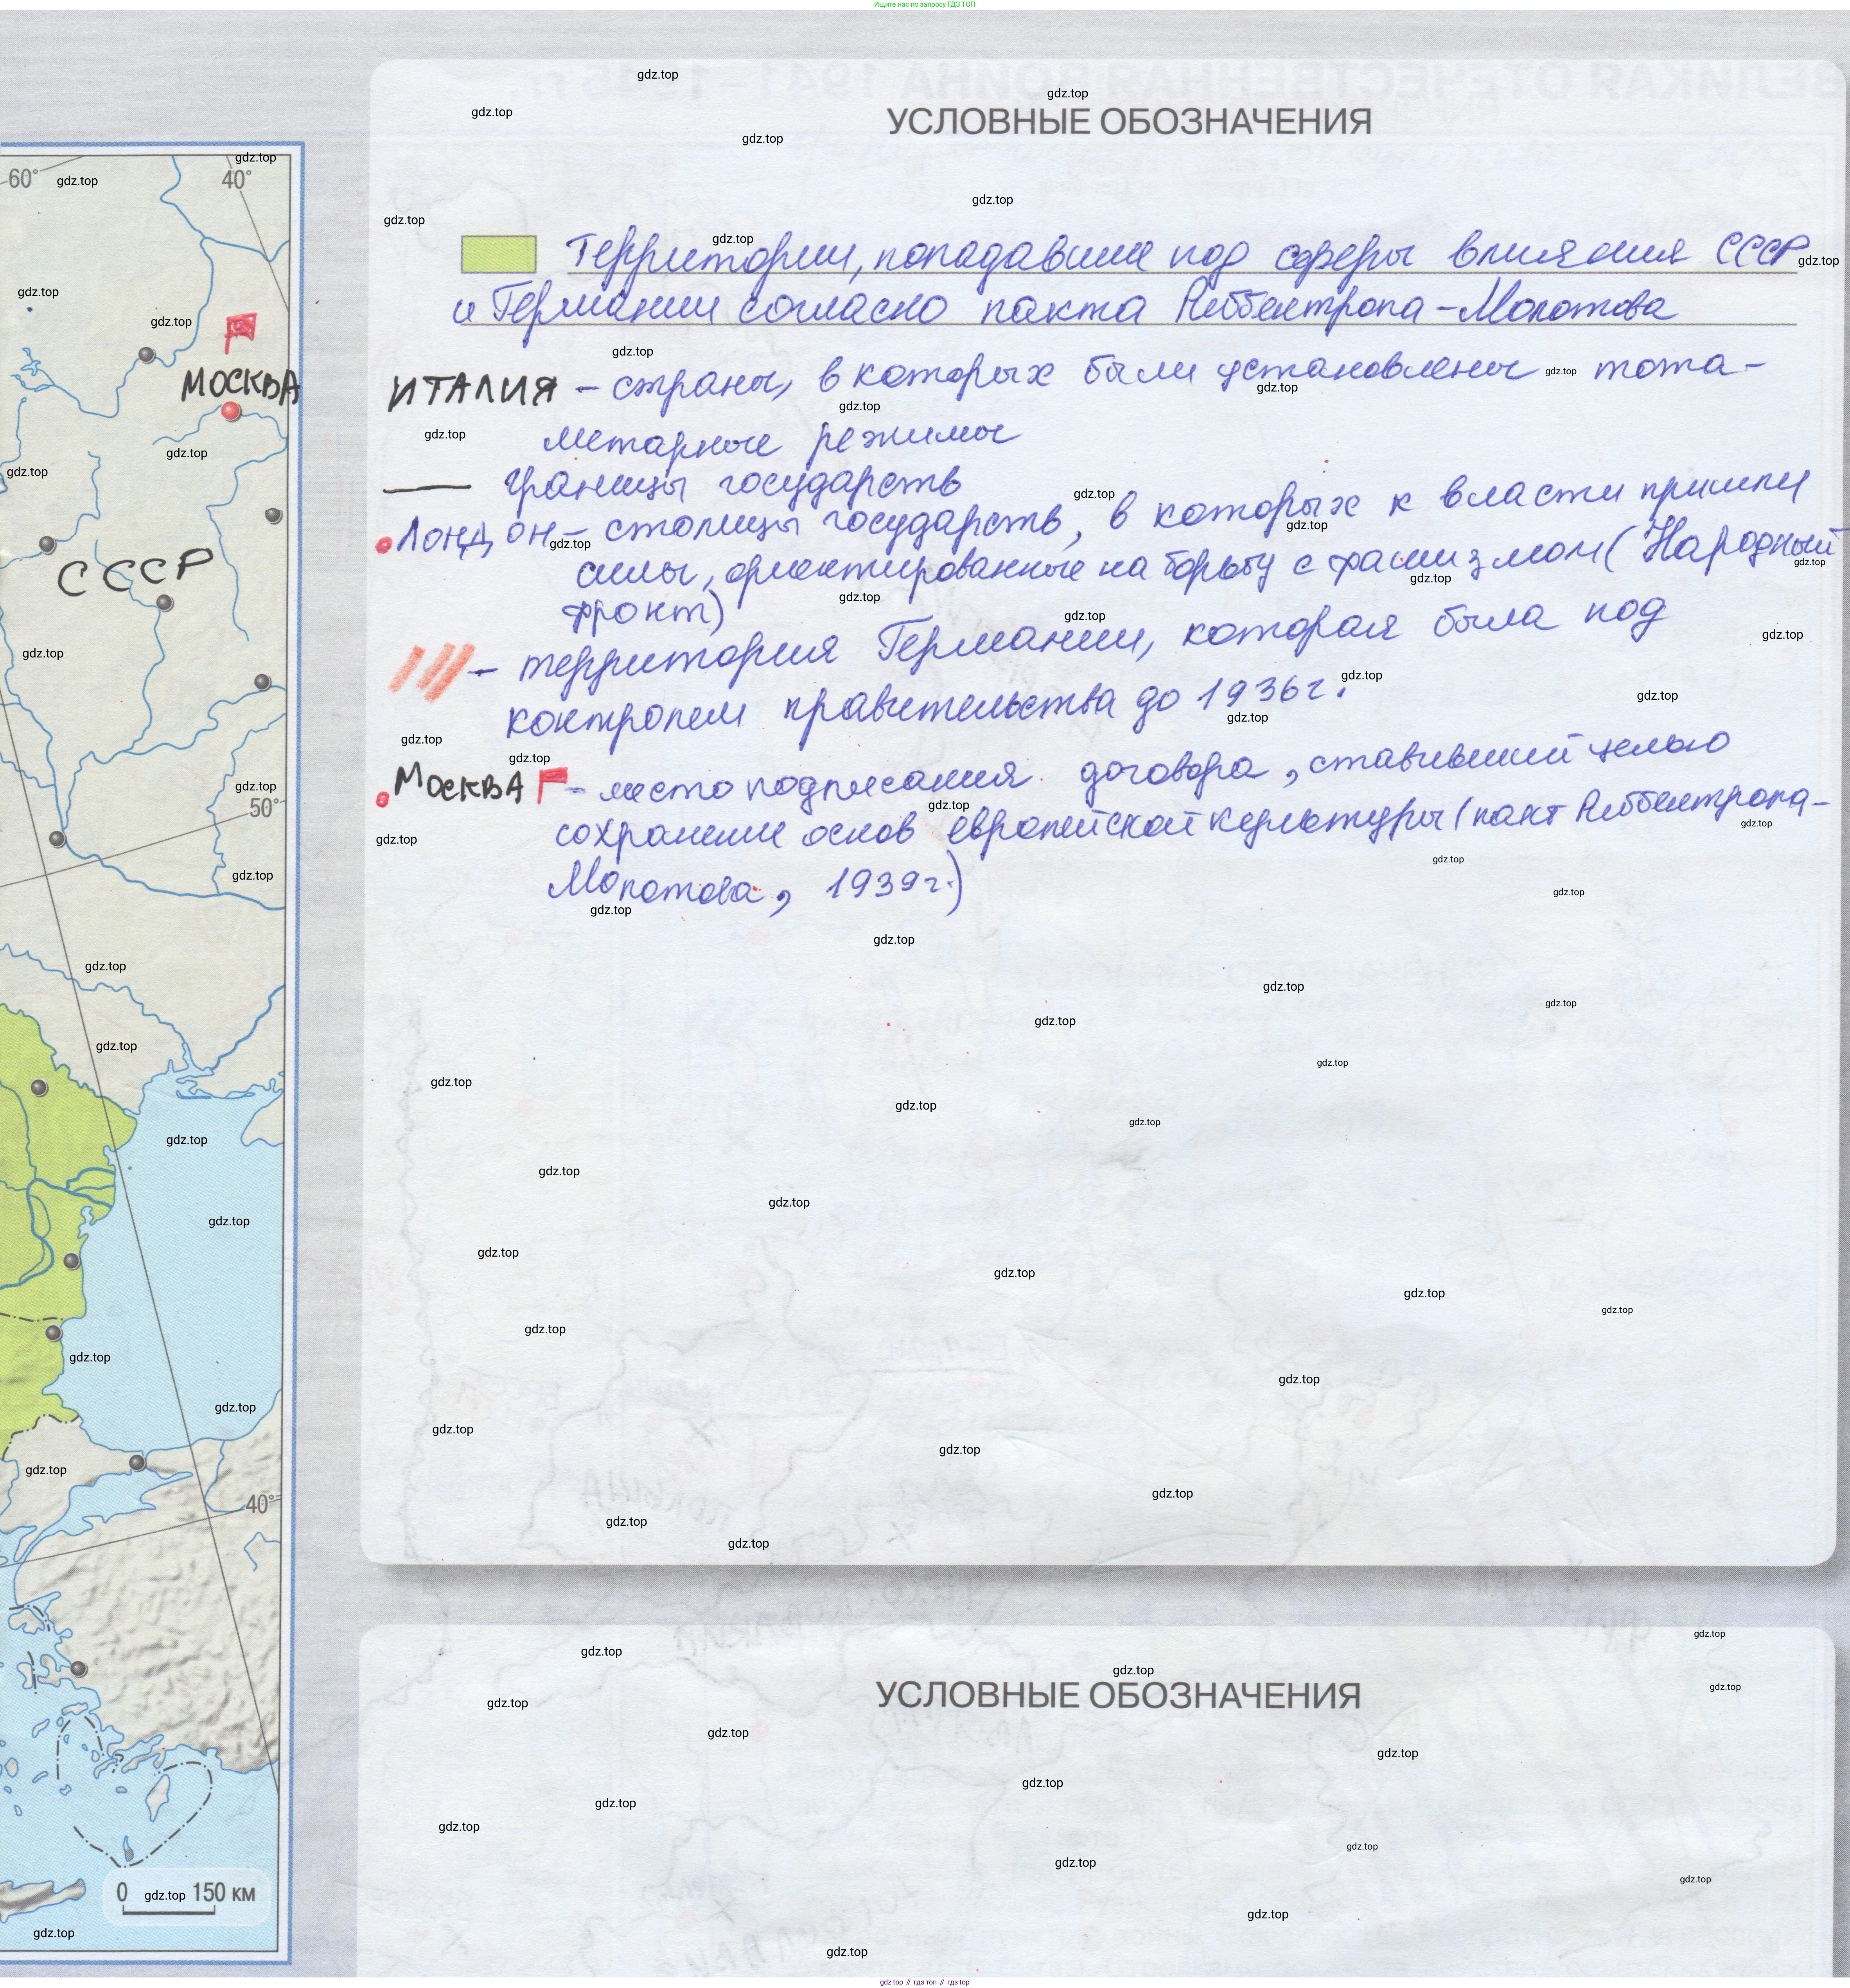 Ищите нас по запросу ГДЗ ТОП
УСЛОВНЫЕ ОБОЗНАЧЕНИЯ
Территории, попадавшие под сферы влияния СССР
и Германии согласно пакта Риббентропа-Молотова
ИТАЛИЯ – страны, в которых были установлены тота-
литарные режимы
границы государств
Лондон – столицы государств, в которых к власти пришли
силы, ориентированные на борьбу с фашизмом (Народный
фронт)
– территория Германии, которая была под
контролем правительства до 1936г.
МОСКВА – место подписания договора, ставивший целью
сохранение основ европейской культуры (пакт Риббентропа-
Молотова, 1939г.)
УСЛОВНЫЕ ОБОЗНАЧЕНИЯ
60°
40°
МОСКВА
СССР
50°
40°
0 150 КМ
gdz.top
gdz top // гдз топ // гдз top